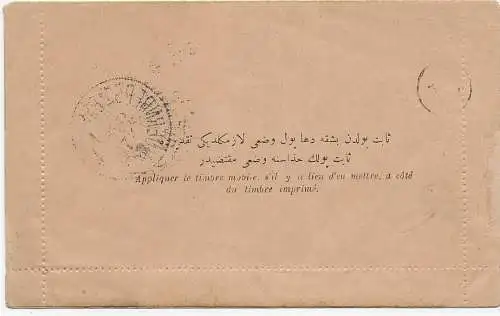 ثابت پولدن بشقه دها پول وضعی لازمكلديكی تقديرده
ثابت پولك حذاسنه وضعی مقتضيدر
Appliquer le timbre mobile, s'il y a lieu d'en mettre, à côté
du timbre imprimé.